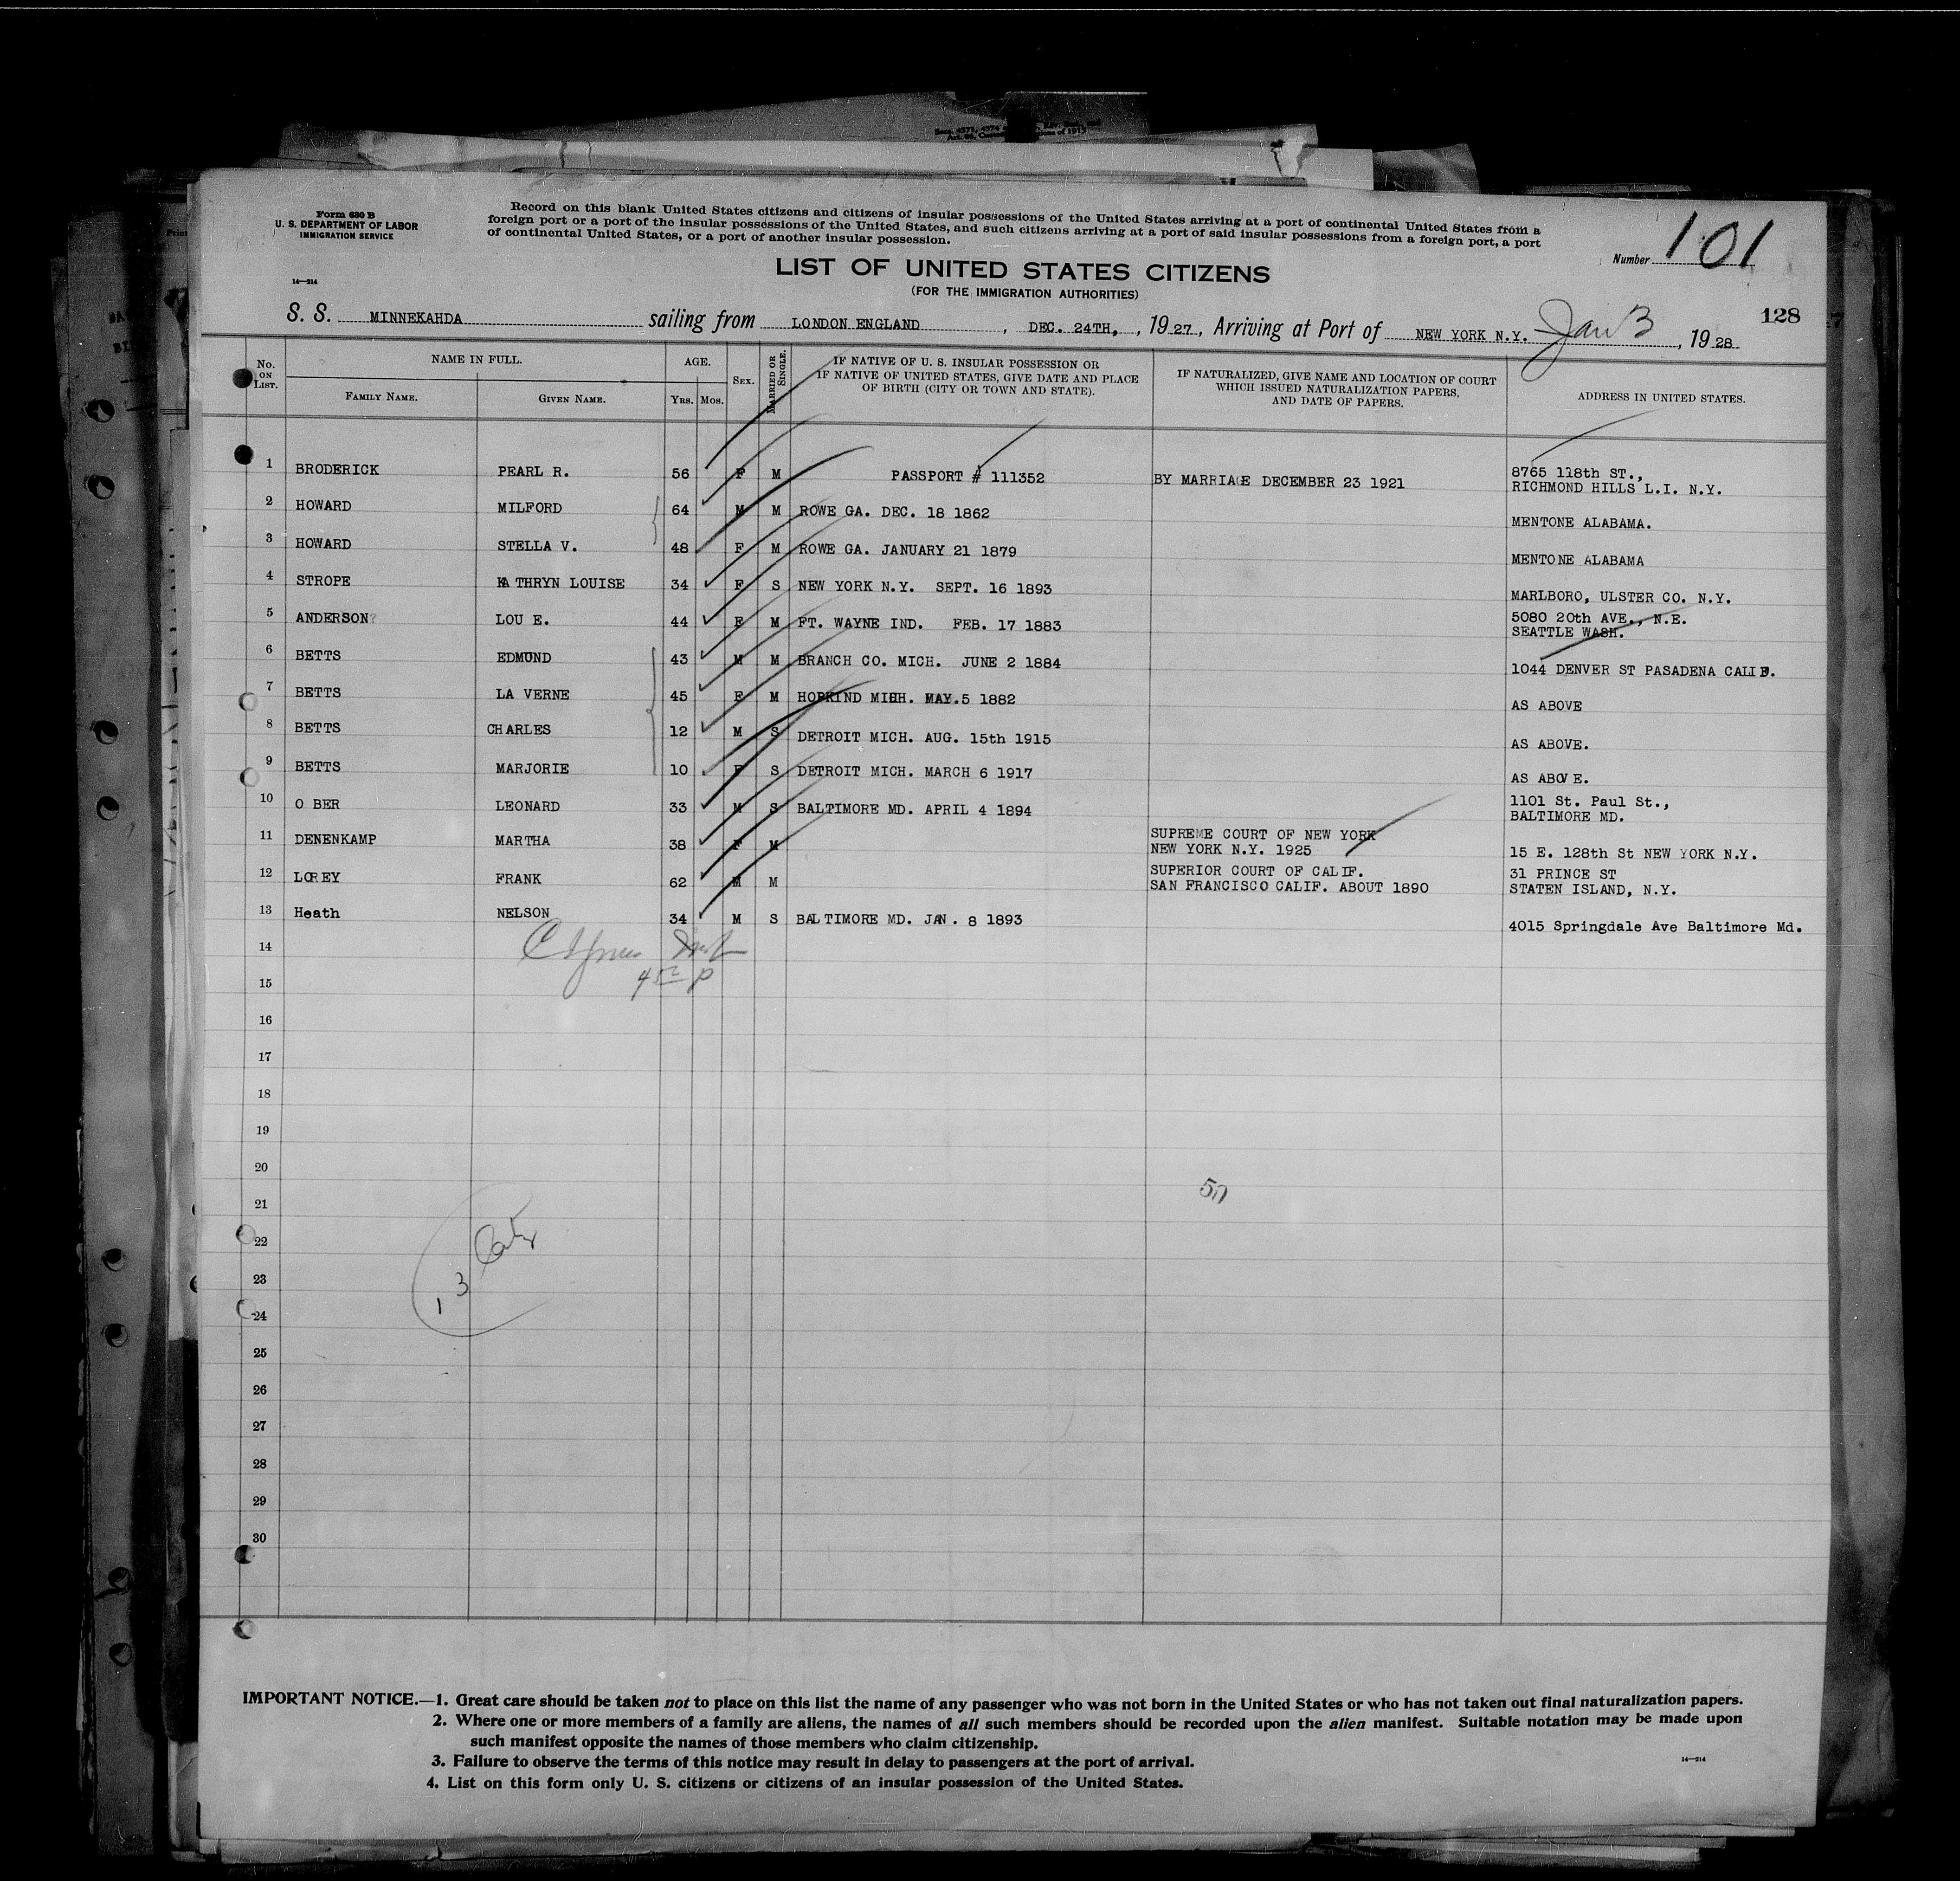 Form 630 B
U. S. DEPARTMENT OF LABOR
IMMIGRATION SERVICE
14—214
Record on this blank United States citizens and citizens of insular possessions of the United States arriving at a port of continental United States from a
foreign port or a port of the insular possessions of the United States, and such citizens arriving at a port of said insular possessions from a foreign port, a port
of continental United States, or a port of another insular possession.
Number 101
LIST OF UNITED STATES CITIZENS
(FOR THE IMMIGRATION AUTHORITIES)
128
S. S. MINNEKAHDA sailing from LONDON ENGLAND, DEC. 24TH, , 1927, Arriving at Port of NEW YORK N.Y. Jan 3, 1928
No. ON LIST. NAME IN FULL. FAMILY NAME. GIVEN NAME. AGE. Yrs. Mos. SEX. MARRIED OR SINGLE. IF NATIVE OF U. S. INSULAR POSSESSION OR IF NATIVE OF UNITED STATES, GIVE DATE AND PLACE OF BIRTH (CITY OR TOWN AND STATE). IF NATURALIZED, GIVE NAME AND LOCATION OF COURT WHICH ISSUED NATURALIZATION PAPERS, AND DATE OF PAPERS. ADDRESS IN UNITED STATES.
1 BRODERICK PEARL R. 56 F M PASSPORT # 111352 BY MARRIAGE DECEMBER 23 1921 8765 118th ST., RICHMOND HILLS L.I. N.Y.
2 HOWARD MILFORD 64 M M ROWE GA. DEC. 18 1862 MENTONE ALABAMA.
3 HOWARD STELLA V. 48 F M ROWE GA. JANUARY 21 1879 MENTONE ALABAMA
4 STROPE KATHRYN LOUISE 34 F S NEW YORK N.Y. SEPT. 16 1893 MARLBORO, ULSTER CO. N.Y.
5 ANDERSON? LOU E. 44 F M FT. WAYNE IND. FEB. 17 1883 5080 20th AVE., N.E. SEATTLE WASH.
6 BETTS EDMUND 43 M M BRANCH CO. MICH. JUNE 2 1884 1044 DENVER ST PASADENA CALIF.
7 BETTS LA VERNE 45 F M HOPKIND MICH. MAY.5 1882 AS ABOVE
8 BETTS CHARLES 12 M S DETROIT MICH. AUG. 15th 1915 AS ABOVE.
9 BETTS MARJORIE 10 F S DETROIT MICH. MARCH 6 1917 AS ABOVE.
10 O BER LEONARD 33 M S BALTIMORE MD. APRIL 4 1894 1101 St. Paul St., BALTIMORE MD.
11 DENENKAMP MARTHA 38 F M SUPREME COURT OF NEW YORK NEW YORK N.Y. 1925 15 E. 128th St NEW YORK N.Y.
12 LOREY FRANK 62 M M SUPERIOR COURT OF CALIF. SAN FRANCISCO CALIF. ABOUT 1890 31 PRINCE ST STATEN ISLAND, N.Y.
13 Heath NELSON 34 M S BALTIMORE MD. JAN. 8 1893 4015 Springdale Ave Baltimore Md.
14
15
16
17
18
19
20
21
22
23
24
25
26
27
28
29
30
50
13
IMPORTANT NOTICE.—1. Great care should be taken not to place on this list the name of any passenger who was not born in the United States or who has not taken out final naturalization papers.
2. Where one or more members of a family are aliens, the names of all such members should be recorded upon the alien manifest. Suitable notation may be made upon
such manifest opposite the names of those members who claim citizenship.
3. Failure to observe the terms of this notice may result in delay to passengers at the port of arrival.
4. List on this form only U. S. citizens or citizens of an insular possession of the United States.
14—214